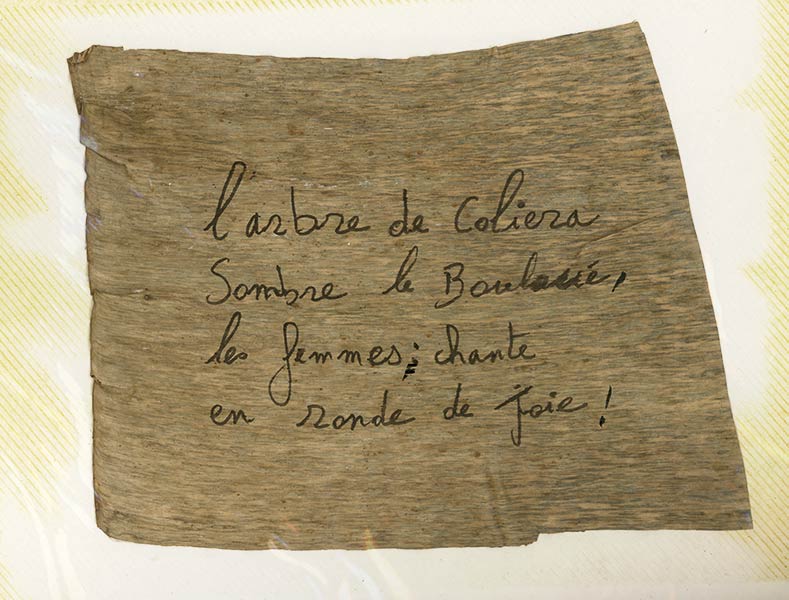 l'arbre de Coliera
Sombre le
les femmes; chante
en ronde de joie !